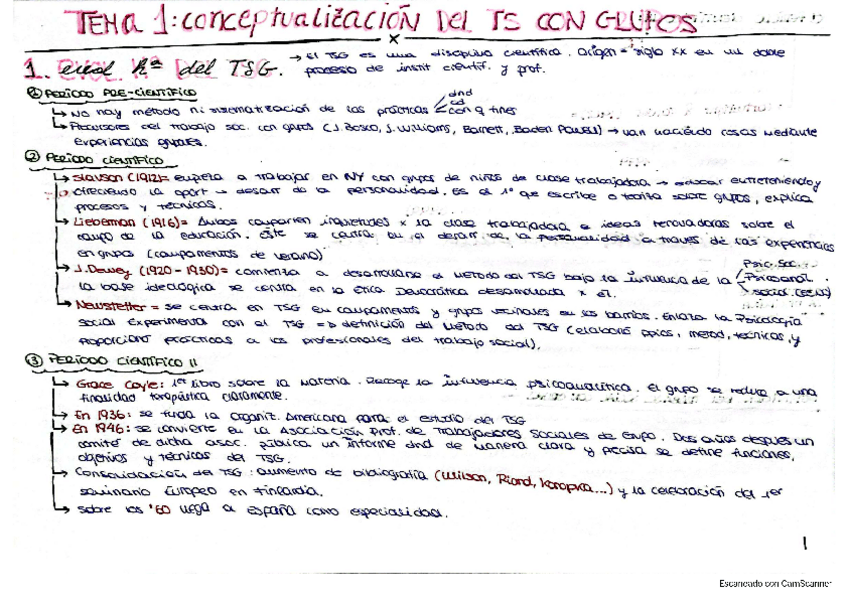 TEMA 1: CONCEPTUALIZACIÓN DEL TS CON GRUPOS
1. Evol. Hª del TSG. → El TSG es una disciplina científica. Origen = siglo XX en un doble
proceso de instit científ. y prof.
① PERÍODO PRE-CIENTÍFICO
↳ No hay método ni sistematización de las prácticas dnd
cd
con q fines
↳ Precursores del trabajo soc. con grupos (J. Bosco, J. Williams, Barnett, Baden Powell) → van haciendo cosas mediante
experiencias grupales.
② PERÍODO CIENTÍFICO
↳ Slavson (1912) = empieza a trabajar en NY con grupos de niños de clase trabajadora → educar entreteniendo y
ofreciendo la oport → desarr de la personalidad. Es el 1º que escribe o teoriza sobre grupos, explica
procesos y técnicas.
↳ Lieberman (1916) = Ambos comparten inquietudes x la clase trabajadora e ideas renovadoras sobre el
campo de la educación. Éste se centra en el desarr. de la personalidad a través de las experiencias
en grupo (campamentos de verano)
↳ J. Dewey (1920 - 1930) = comienza a desarrollarse el método del TSG bajo la influencia de la Psic. Soc.
Psicoanál.
social. (EEUU)
la base ideológica se centra en la Ética Democrática desarrollada x él.
↳ Newstetter = se centra en TSG en campamentos y grupos vecinales en los barrios. Enlaza la Psicología
social Experimental con el TSG => definición del Método del TSG (elaboró ppios, metod, técnicas, y
proporcionó prácticas a los profesionales del trabajo social).
③ PERÍODO CIENTÍFICO II
↳ Grace Coyle: 1er libro sobre la materia. Recoge la influencia psicoanalítica. El grupo se reduce a una
finalidad terapéutica claramente.
↳ En 1936: se funda la Organiz. Americana para el estudio del TSG
↳ En 1946: se convierte en la Asociación Prof. de Trabajadores Sociales de Grupo. Dos años después un
comité de dicha asoc. publica un informe dnd de manera clara y precisa se define funciones,
objetivos y técnicas del TSG.
↳ Consolidación del TSG: aumento de bibliografía (Wilson, Riand, Konopka...) y la celebración del 1er
seminario Europeo en Finlandia.
↳ Sobre los '60 llega a España como especialidad.
1
Escaneado con CamScanner